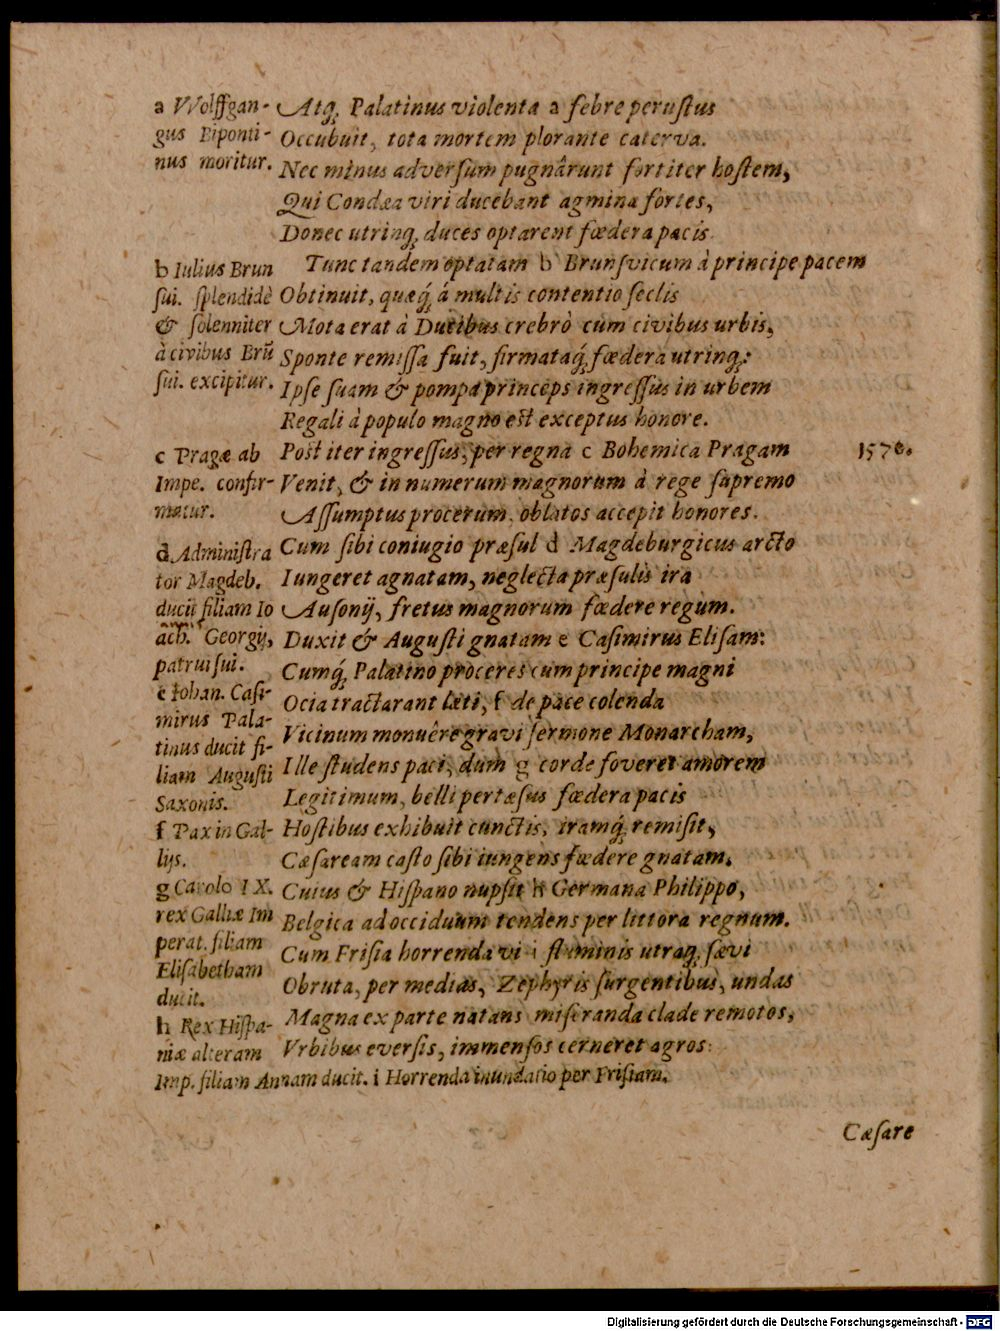 Atq́; Palatinus violenta a febre perustus
Occubuit, tota mortem plorante caterva.
Nec minus adversùm pugnârunt fortiter hostem,
Qui Condæa viri ducebant agmina fortes,
Donec utrinq; duces optarent fœdera pacis.
Tunc tandem optatam b Brunsvicum à principe pacem
Obtinuit, quæq́; á multis contentio seclis
Mota erat à Ducibus crebrò cum civibus urbis,
Sponte remissa fuit, firmataq́; fœdera utrinq;:
Ipse suam & pompa princeps ingressus in urbem
Regali à populo magno est exceptus honore.
Post iter ingressus, per regna c Bohemica Pragam
Venit, & in numerum magnorum à rege supremo
Assumptus procerum, oblatos accepit honores.
Cum sibi coniugio præsul d Magdeburgicus arcto
Iungeret agnatam, neglecta præsulis ira
Ausonij, fretus magnorum fœdere regum.
Duxit & Augusti gnatam e Casimirus Elisam:
Cumq́; Palatino proceres cum principe magni
Ocia tractarant læti, f de pace colenda
Vicinum monuêre gravi sermone Monarcham,
Ille studens paci, dum g corde foveret amorem
Legitimum, belli pertæsus fœdera pacis
Hostibus exhibuit cunctis, iramq́; remisit,
Cæsaream casto sibi iungens fœdere gnatam.
Cuius & Hispano nupsit h Germana Philippo,
Belgica ad occiduum tendens per littora regnum.
Cum Frisia horrenda vi i fluminis utraq; sævi
Obruta, per medias, Zephyris surgentibus, undas
Magna ex parte natans miseranda clade remotos,
Vrbibus eversis, immensos cerneret agros:
a VVolffgan-
gus Biponti-
nus moritur.
b Iulius Brun
sui. splendidè
& solenniter
à civibus Brũ
sui. excipitur.
c Pragæ ab
Impe. confir-
matur.
1570.
d Administra
tor Magdeb.
ducit filiam Io
ach. Georgij,
patrui sui.
e Iohan. Casi-
mirus Pala-
tinus ducit fi-
liam Augusti
Saxonis.
f Pax in Gal-
lijs.
g Carolo IX.
rex Galliæ Im
perat. filiam
Elisabetham
ducit.
h Rex Hispa-
niæ alteram
Imp. filiam Annam ducit. i Horrenda inundatio per Frisiam.
Cæsare
Digitalisierung gefördert durch die Deutsche Forschungsgemeinschaft - DFG